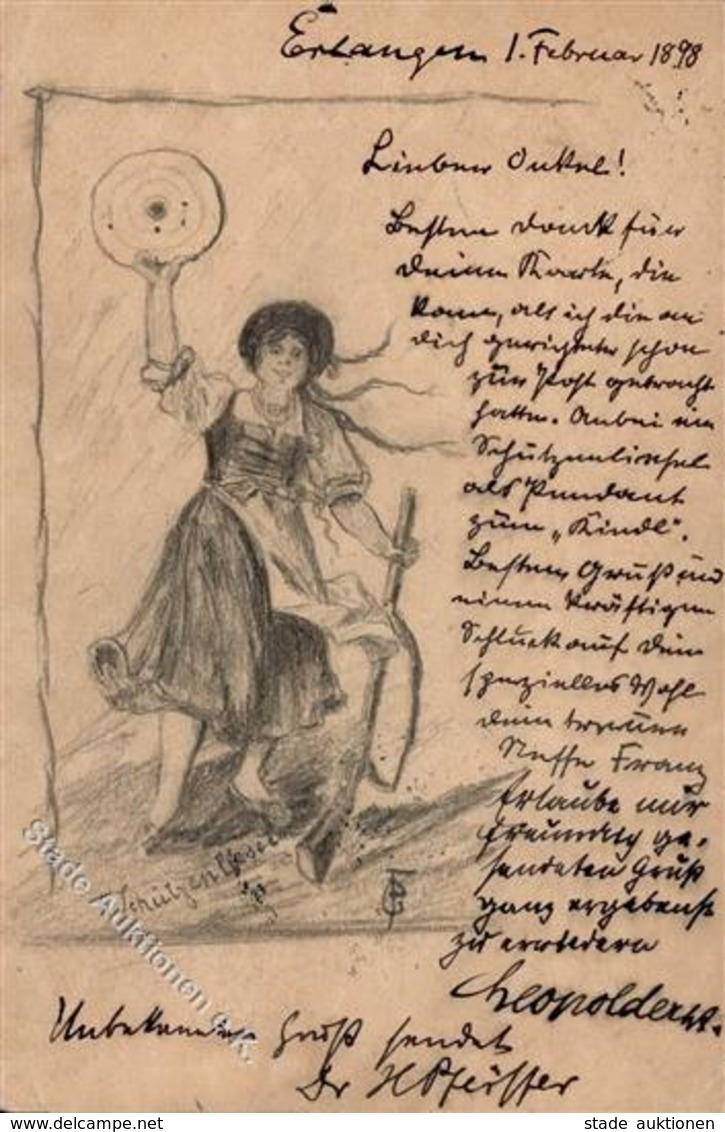 Erlangen 1. Februar 1898
Lieber Onkel!
Besten Dank für
deine Karte, die
kam, als ich die an
dich gerichtete schon
zur Post gebracht
hatte. Anbei ein
Schützenliesel
als Pendant
zum „Kindl“.
Besten Gruß und
einen kräftigen
Schluck auf dein
spezielles Wohl
dein treuer
Neffe Franz
Erlaube mir
freundlig ge-
sendeten Gruß
ganz ergebenst
zu erwiedern
Leopolder
Schützenliesel
Unbekannter Weise Gruß sendet
Dr H Pfeiffer
Stade Auktionen e.K.
www.delcampe.net
stade auktionen